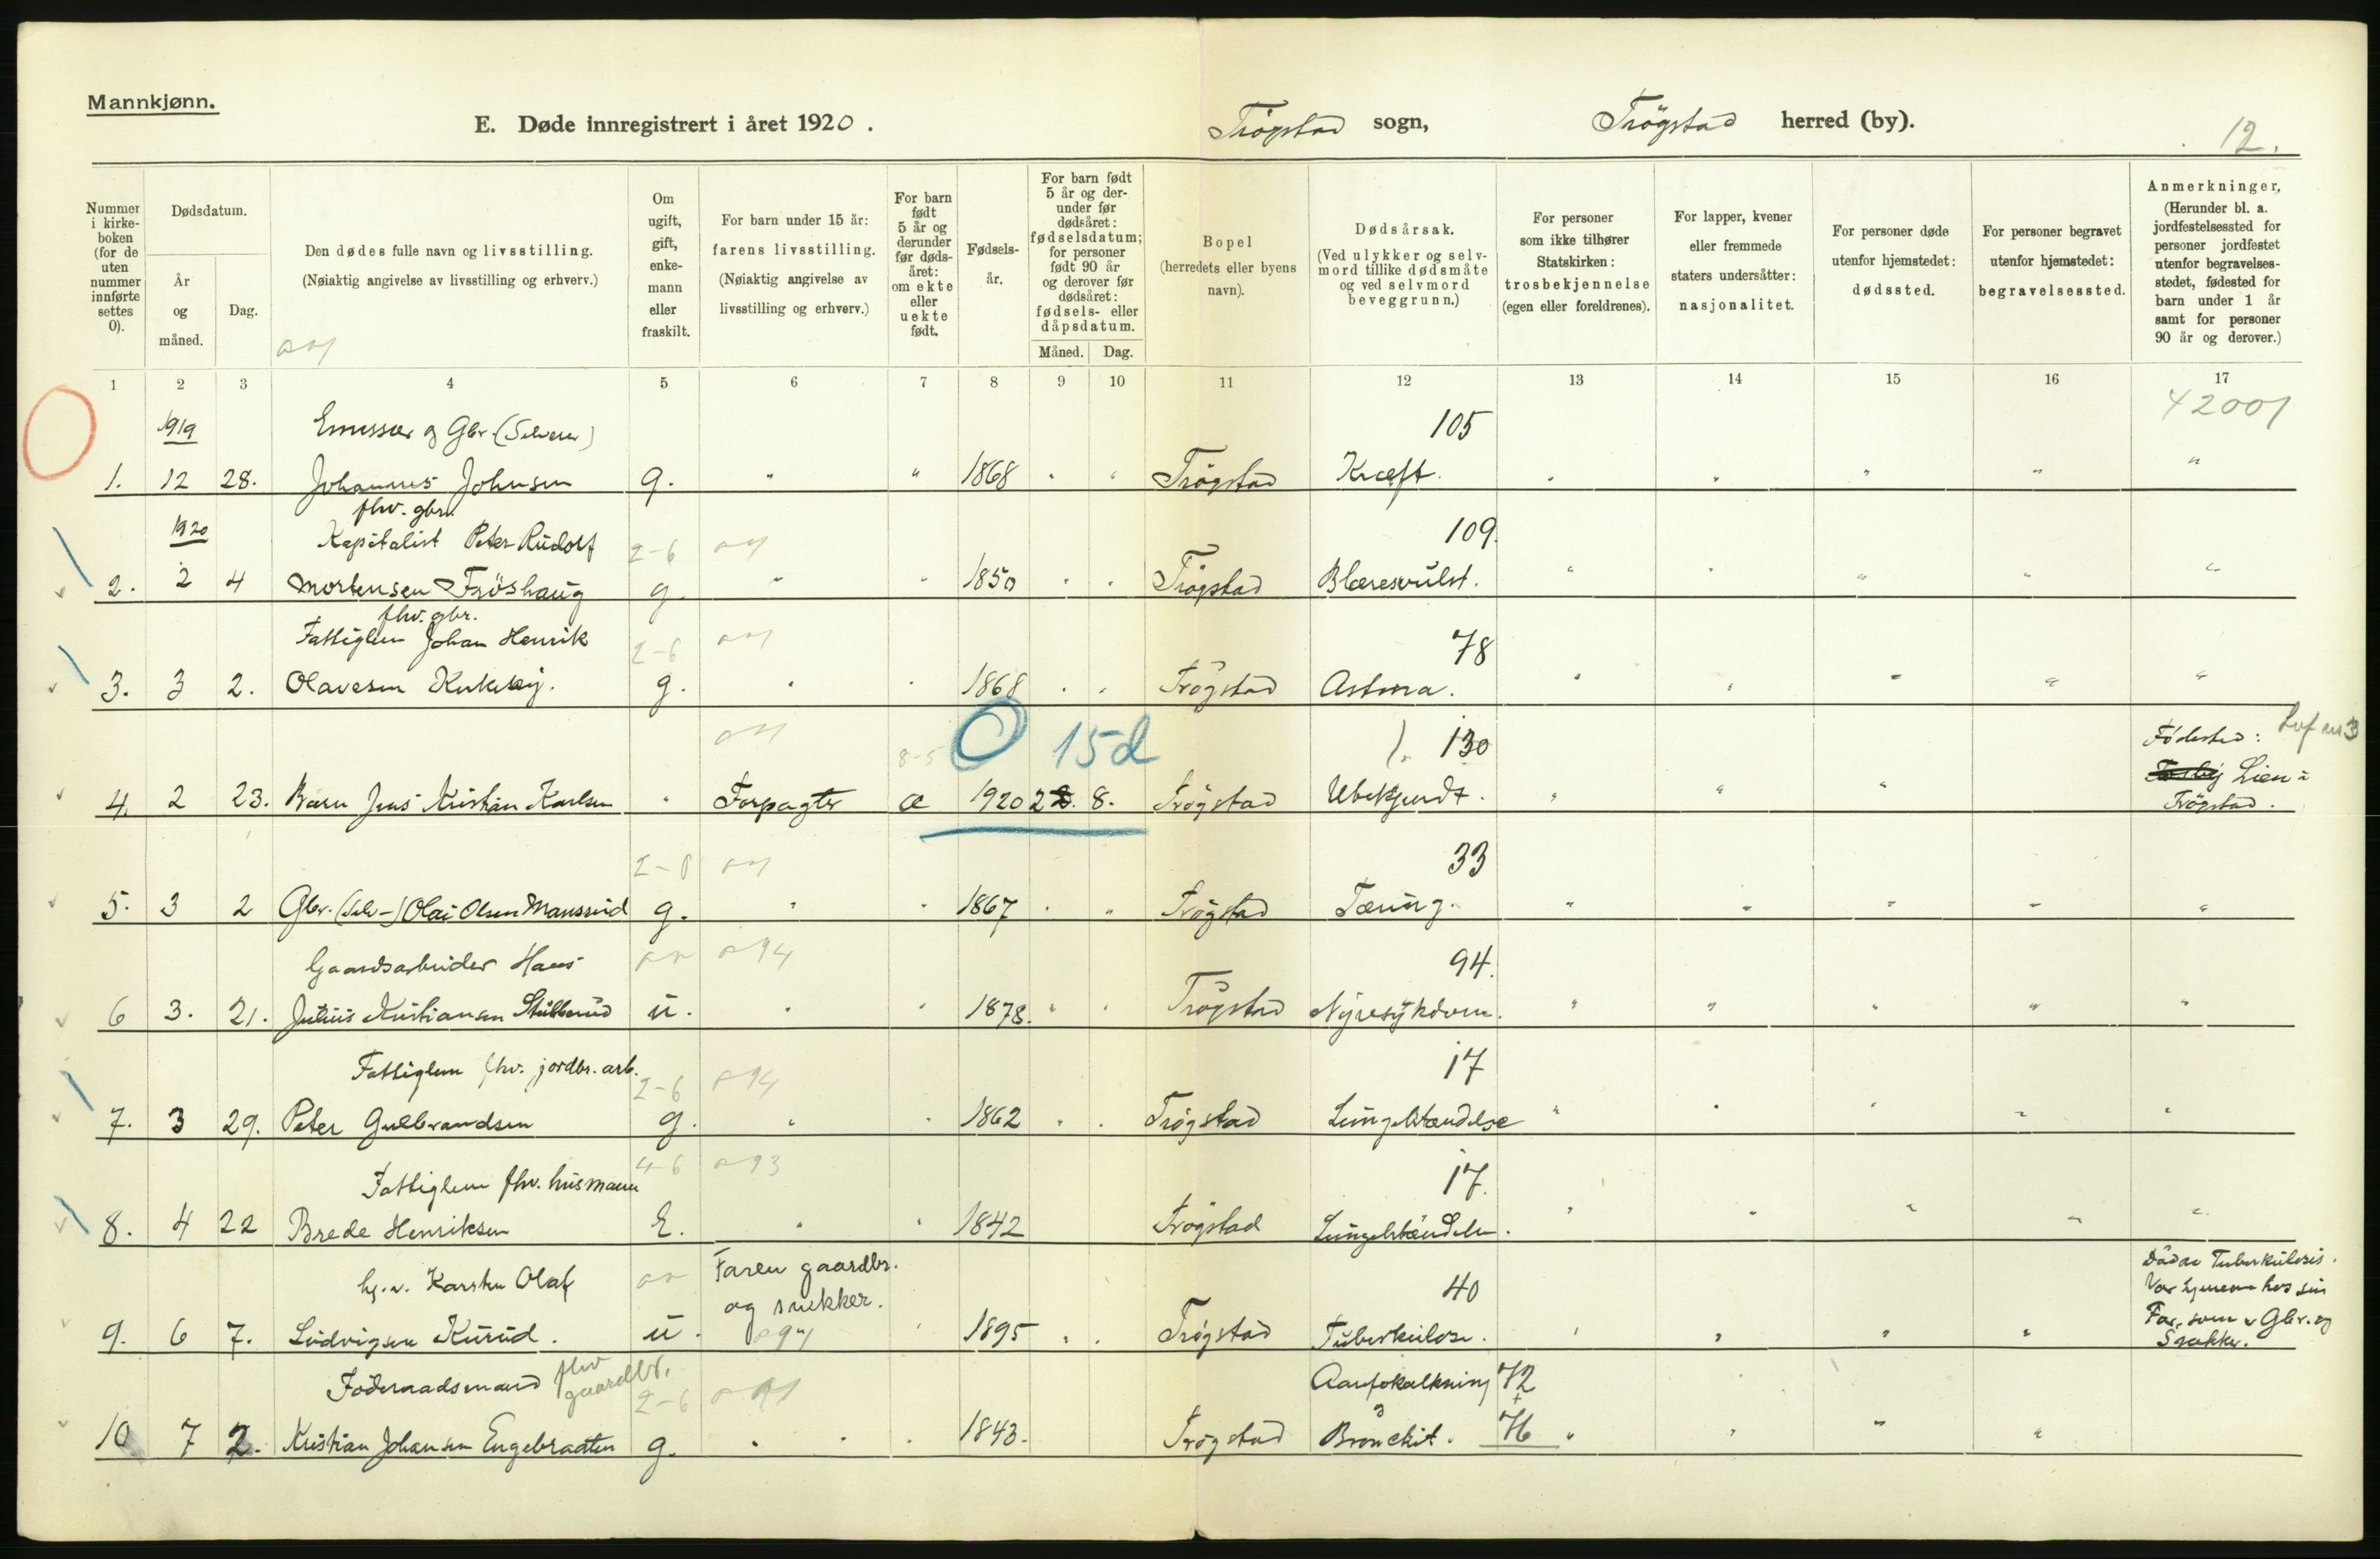 Mannkjønn.
E. Døde innregistrert i året 1920.
Trögstad sogn, Trögstad herred (by).
12.
Nummer i kirkeboken (for de uten nummer innførte settes 0).
Dødsdatum.
År og måned.
Dag.
Den dødes fulle navn og livsstilling.
(Nøiaktig angivelse av livsstilling og erhverv.)
Om ugift, gift, enkemann eller fraskilt.
For barn under 15 år: farens livsstilling.
(Nøiaktig angivelse av livsstilling og erhverv.)
For barn født 5 år og derunder før dødsåret: om ekte eller uekte født.
Fødselsår.
For barn født 5 år og derunder før dødsåret: fødselsdatum; for personer født 90 år og derover før dødsåret: fødsels- eller dåpsdatum.
Måned. Dag.
Bopel (herredets eller byens navn).
Dødsårsak.
(Ved ulykker og selvmord tillike dødsmåte og ved selvmord beveggrunn.)
For personer som ikke tilhører Statskirken: trosbekjennelse (egen eller foreldrenes).
For lapper, kvener eller fremmede staters undersåtter: nasjonalitet.
For personer døde utenfor hjemstedet: dødssted.
For personer begravet utenfor hjemstedet: begravelsessted.
Anmerkninger.
(Herunder bl. a. jordfestelsessted for personer jordfestet utenfor begravelsesstedet, fødested for barn under 1 år samt for personer 90 år og derover.)
1 2 3 4 5 6 7 8 9 10 11 12 13 14 15 16 17
42001
1919 og Gbr. (Selveier) 105
1. 12 28. Johannes Johnsen g. " " 1868 " " Trögstad Kræft. " " " " "
fhv. gbr.
1920 Kapitalist Peter Rudolf 2-6 109.
2. 2 4 Mortensen Fröshaug g. " " 1850 " " Trögstad Blæresvulst. " " " " "
fhv. gbr.
Fattiglem Johan Henrik 2-6 78
3. 3 2. Olavesen g. " " 1868 " " Trögstad Astma. " " " " "
O 15d 130 Födested:
8-5
4. 2 23. Barn Jens Kristian Karlsen " Forpagter æ 1920 2 8. Trögstad Ubekjendt. " " " Lien i
Trögstad.
33
5. 3 2 Gbr. (Selv-) Olai Olsen Maussud g. " " 1867 " " Trögstad Tæring. " " " " "
Gaardsarbeider Hans 94.
6 3. 21. Julius Kristiansen Stubberud u. " " 1878. " " Trögstad Nyresykdom. " " " " "
Fattiglem fhv. jordbr. arb. 2-6 17
7. 3 29. Peter Gulbrandsen g. " " 1862 " " Trögstad Lungebetændelse " " " " "
Fattiglem fhv. husmann 4-6 17.
8. 4 22 Brede Henriksen E. " " 1842 Trögstad Lungebetændelse. " " " " "
hj.v. Karsten Olaf Faren gaardbr. 40 Döde av Tuberkulosis.
og snekker. Var hjemme hos sin
9. 6 7. Ludvigsen Kurud. u. " 1895 " " Trögstad Tuberkulose. " " " " Far, som v Gbr. og
Snekker.
Föderaadsmand fhv gaardbr. 2-6 Aareforkalkning 72
+
10 7 2. Kristian Johansen Engebraaten g. " " " 1843. Trögstad Bronchit. 76 " " " "